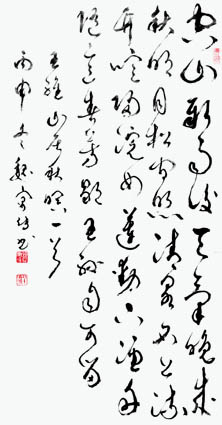 空山新雨後天氣晚來
秋明月松間照清泉石上流
竹喧歸浣女蓮動下漁舟
隨意春芳歇王孫自可留
王維山居秋暝一首
丙申冬魏书